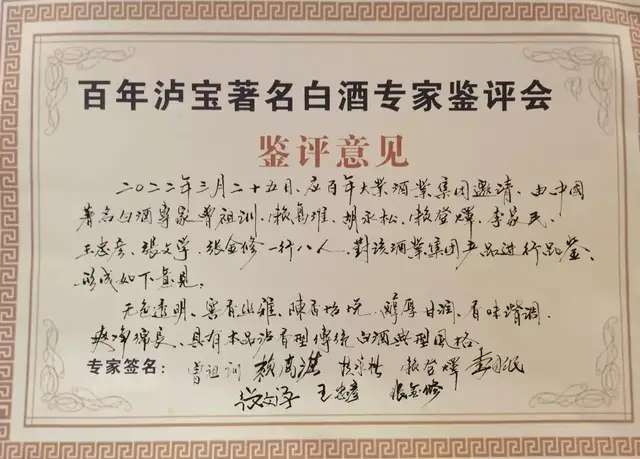 百年泸宝著名白酒专家鉴评会
鉴评意见
二〇二二年三月二十五日、应百年大业酒業集团邀请、由中國
著名白酒專家曾祖训、赖高淮、胡永松、赖登燡、李家民、
王忠彦、張文学、张金修一行八人、對該酒業集团产品进行品鉴、
形成如下意見。
无色透明、窖香幽雅、陳香怡悦、醇厚甘润、香味谐调、
爽净绵長、具有本品浓香型傳统白酒典型風格。
专家签名：曾祖训 赖高淮 赖登燡
张文学 王忠彦 张金修